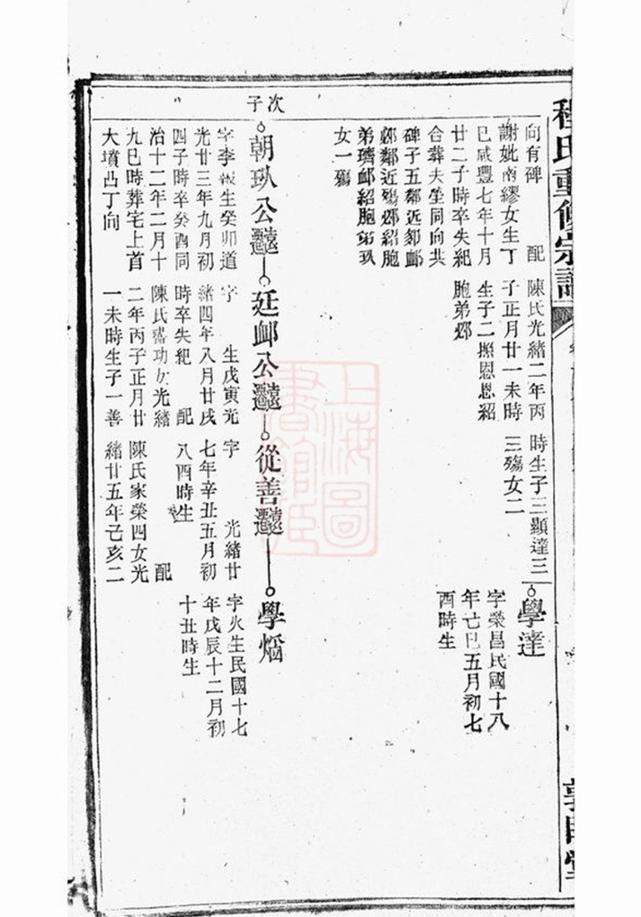 程氏重修宗譜
敦睦堂
向有碑 配
謝妣南繆女生丁
巳咸豐七年十月
廿二子時卒失紀
合葬夫塋同向共
碑子五鄰近邠邮
鄒鄰近殤邠紹胞
弟躋邮紹胞弟玖
女一殤
陳氏光緒二年丙
子正月廿一未時
生子二照恩恩紹
胞弟邠
時生子三顯達三
三殤女二
學達
字榮昌民國十八
年己巳五月初七
酉時生
次子
朝玖公
字季報生癸卯道
光廿三年九月初
四子時卒癸酉同
治十二年二月十
九巳時葬宅上首
大墳凸丁向
廷邮公
字 生戊寅光
緒四年八月廿戌
時卒失紀 配
陳氏盛功女光緒
二年丙子正月廿
一未時生子一善
從善
字 光緒廿
七年辛丑五月初
八酉時生 配
陳氏家榮四女光
緒廿五年己亥二
學熖
字火生民國十七
年戊辰十二月初
十丑時生
上海圖書館藏